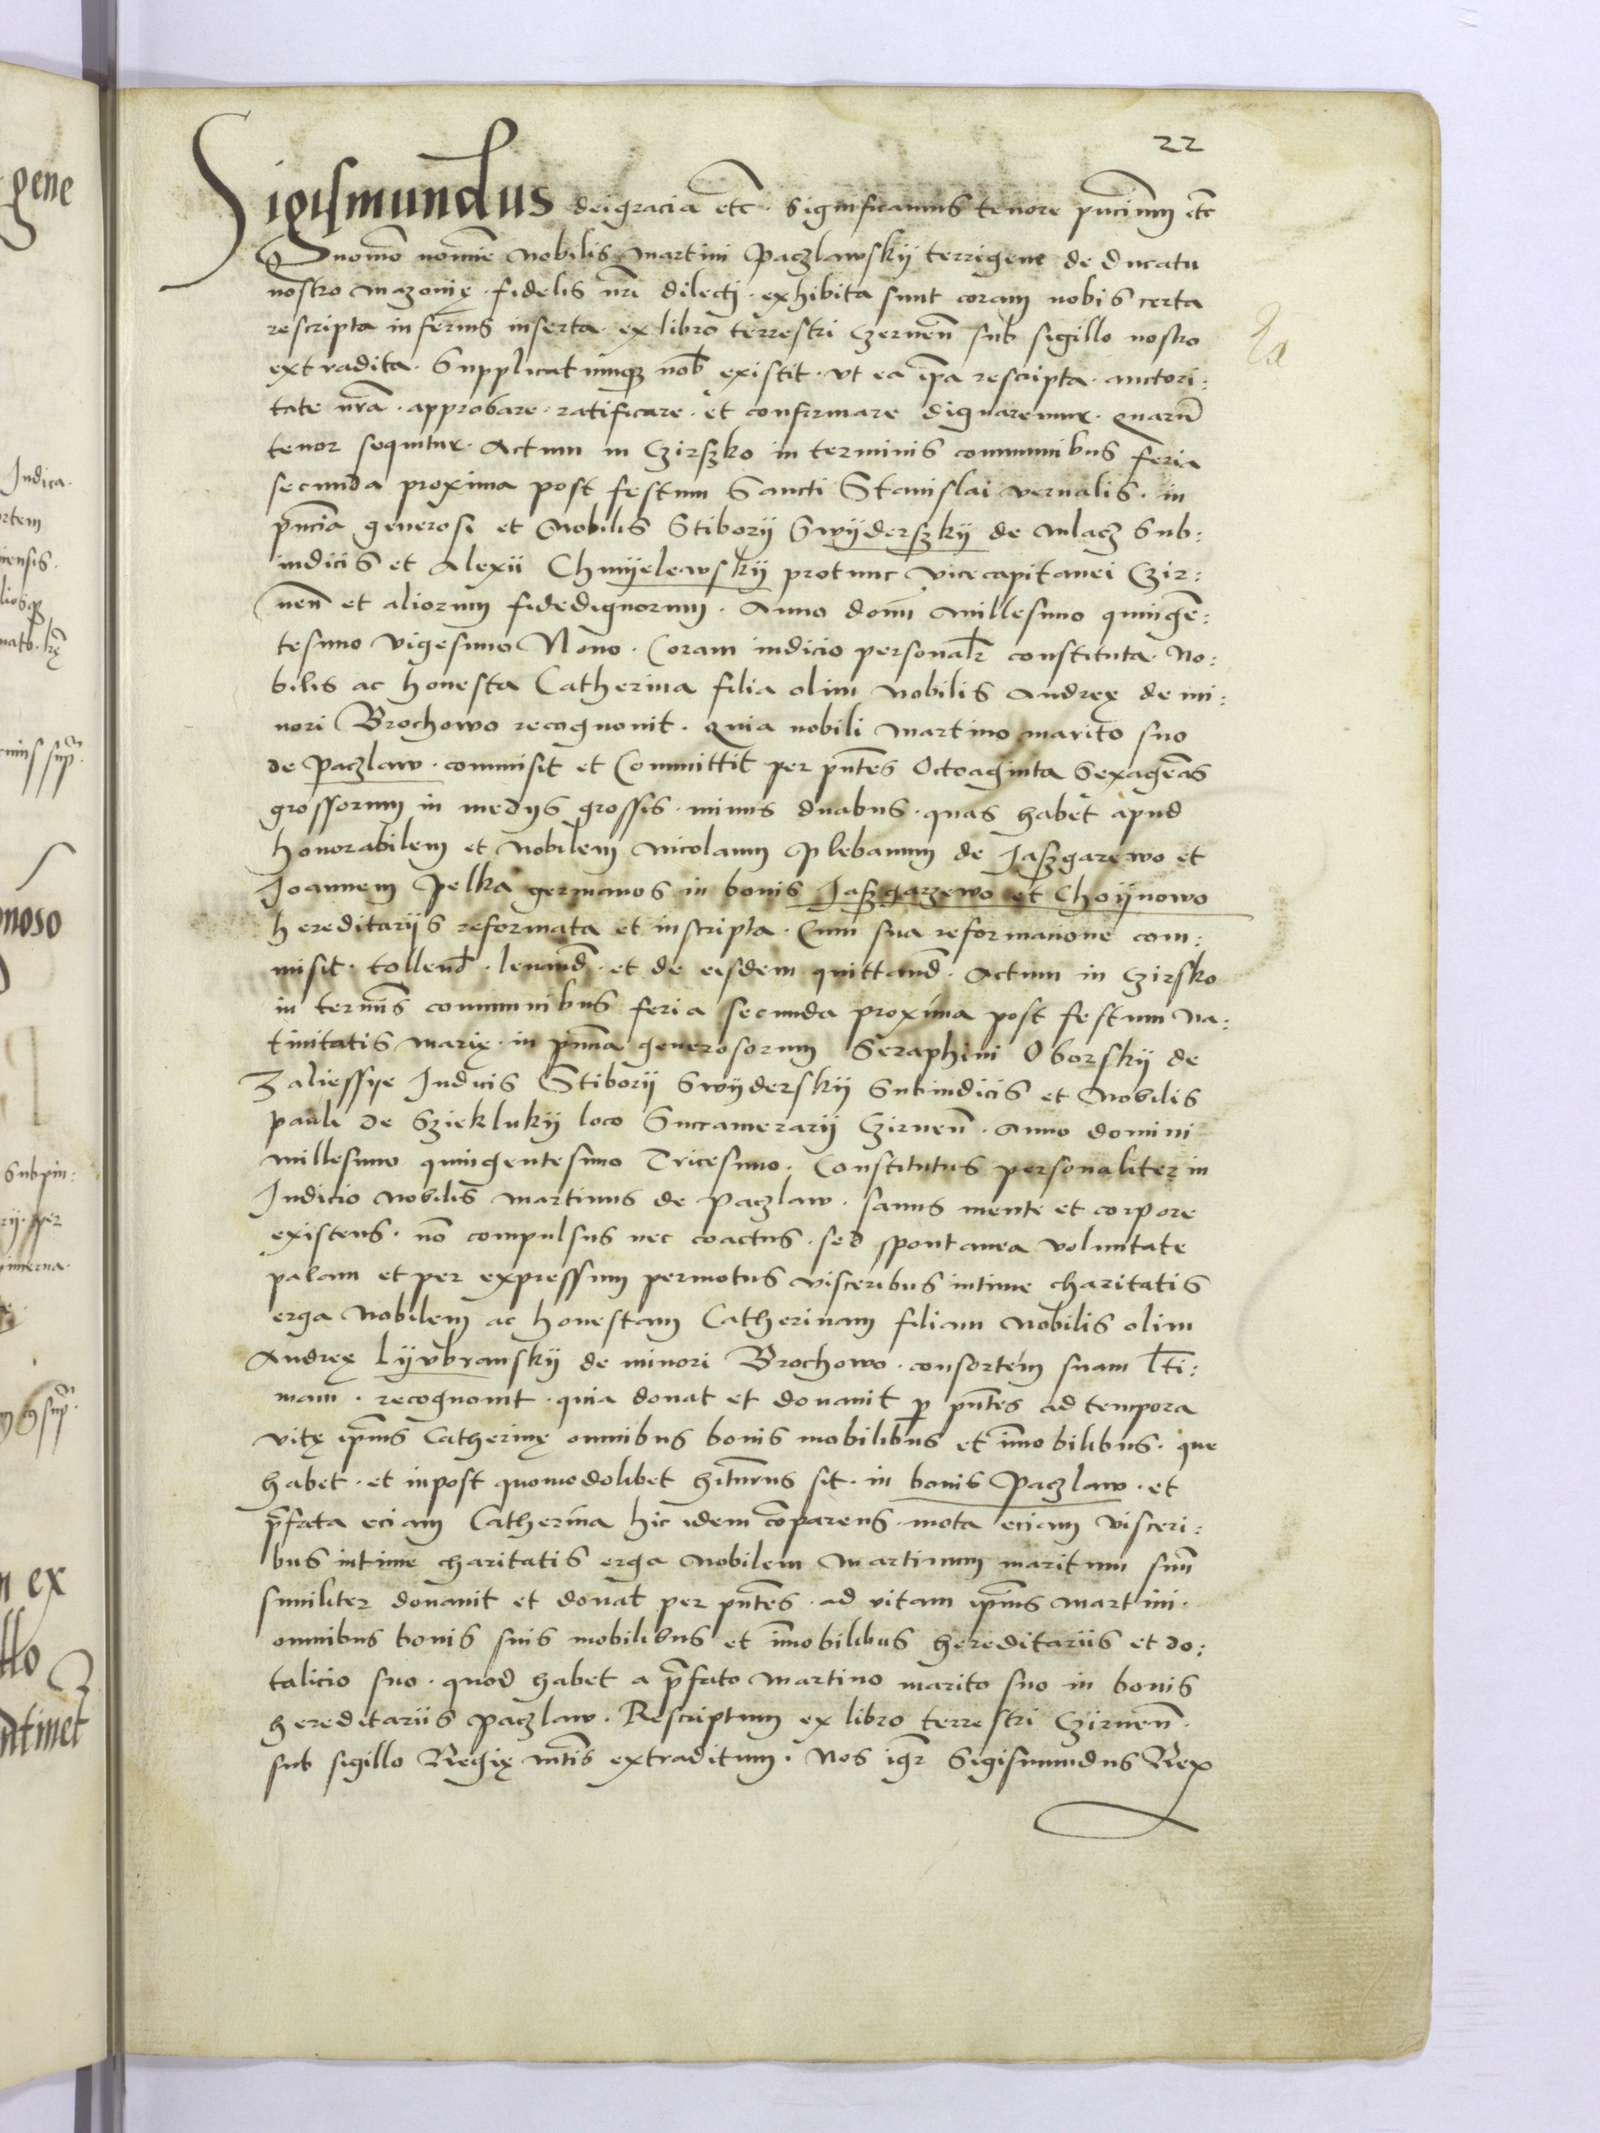 22
Sigismundus deigracia etc̄. Significamus tenore pn̄cium etc̄
Quomō nomine Nobilis Martini Paczlawskÿ terrigene de ducatu
nostro Mazouię. fidelis nr̄i dilectj. exhibita sunt coram nobis certa
rescripta inferius inserta. ex libro terrestri Czernen̄ sub sigillo nostro
extradita. Supplicatumqȝ nob̄ existit. vt ea ip̄a rescripta. auctori:
tate nr̄a. approbare. ratificare. et confirmare dignaremur. Quarū
tenor sequitur. Actum in Czirszko in terminis communibus feria
secunda proxima post festum Sancti Stanislai vernalis. in
pn̄cia generosi et Nobilis Stiborÿ Swÿderszkÿ de Mlacz Sub:
iudicis et Alexii Chmÿelewskÿ protunc Vicecapitanei Czir:
nen̄ et aliorum fidedignorum. Anno domi Millesimo quingē:
tesimo vigesimo Nono. Coram iudicio personalr̄ constituta. No:
bilis ac honesta Catherina filia olim Nobilis Andreę de mi:
nori Brochowo recognouit. Quia nobili Martino marito suo
de Paczlaw. commisit et Committit per pn̄tes Octoaginta Sexagēas
grossorum in medÿs grossis. minus duabus. quas habet apud
honorabilem et Nobilem Nicolaum Plebanum de Jaszgarewo et
Joannem Pelka germanos in bonis Jaszgarzewo et Choÿnowo
hereditarÿs reformata et inscripta. Cum sua reformatione com:
misit. tollend̄. leuand̄. et de eisdem quittand̄. Actum in Czirsko
in terminīs communibus feria secunda proxima post festum Na:
tiuitatis Marię. in pn̄cia generosorum Seraphini Oborskÿ de
Zaliessye Judicis Stiborÿ Swÿderskÿ Subiudicis et Nobilis
Pauli de Sziekluky loco Succamerarÿ Czirnen̄. Anno domini
Millesimo quingentesimo Tricesimo. Constitutus personaliter in
Judicio Nobilis Martinus de Paczlaw. sanus mente et corpore
existens. nō compulsus nec coactus. sed spontanea voluntate
palam et per expressum permotus visceribus intime charitatis
erga Nobilem ac honestam Catherinam filiam Nobilis olim
Andreę Lÿvbranskÿ de minori Brochowo. consortem suam lt̄i:
mam. recognouit. quia donat et donauit p̱ pn̄tes ad tempora
vitę ip̄ius Catherinę omnibus bonis mobilibus et īmobilibus. que
habet. et inpost quomodolibet hiturus sit. in bonis Paczlaw. et
p̄fata eciam Catherina hic idem cōparens. mota eciam visceri:
bus intime charitatis erga Nobilem Martinum maritum suū
similiter donauit et donat per pn̄tes. ad vitam ip̄ius Martini.
omnibus bonis suis mobilibus et īmobilibus hereditariis et do:
talicio suo. quod habet a p̄fato Martino marito suo in bonis
hereditariis Paczlaw. Rescriptum ex libro terrestri Czirnen̄.
sub sigillo Regię mt̄is extraditum. Nos igr̄ Sigismundus Rex